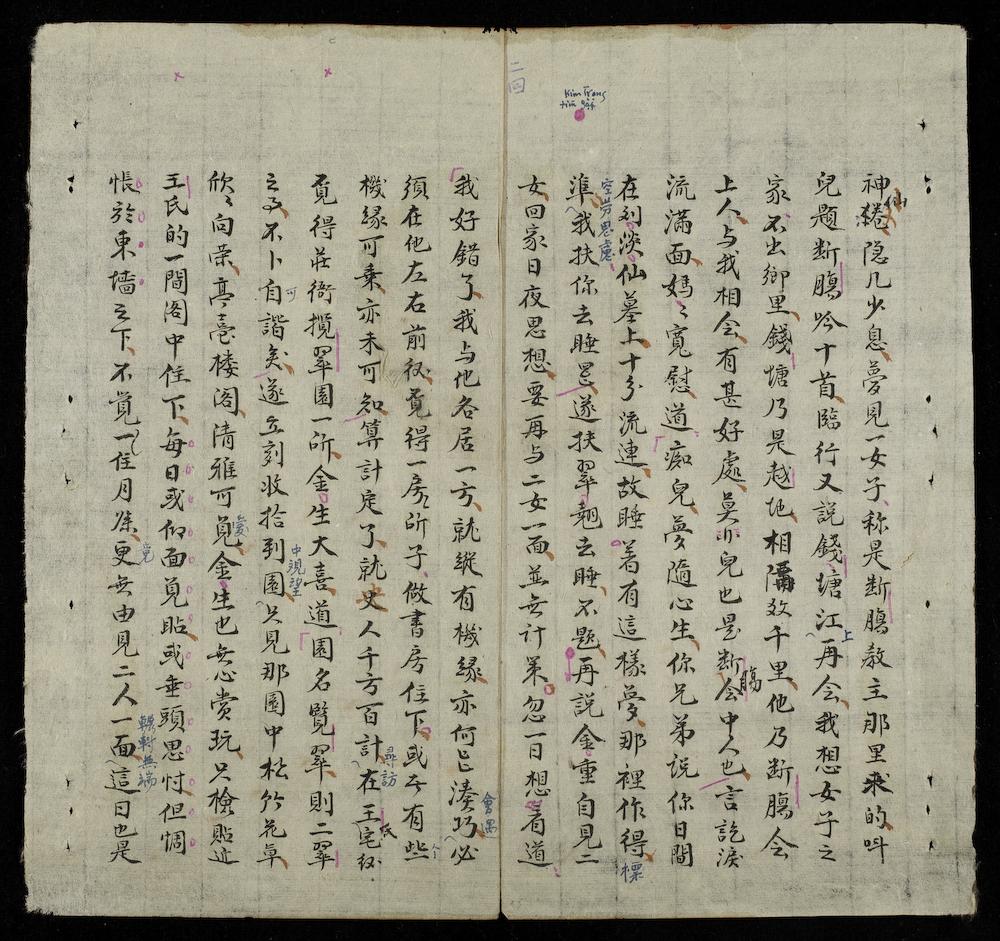 神繞隐几少息夢見一女子称是断膓教主那里來的呌
仙
兒題断膓吟十首臨行又説錢塘江再会我想女子之
上
家不出鄉里錢塘乃是越地相隔数千里他乃断膓会
上人与我相会有甚好處莫非兒也是断会中人也言訖淚
膓
流滿面媽〻寬慰道痴兒夢隨心生你兄弟説你日間
在刘淡仙墓上十分流連故睡着有這樣夢那裡作得
標
準我扶你去睡罷遂扶翠翹去睡不題再説金重自見二
空労思慮
Kim Trọng
tìm gặp
女回家日夜思想要再与二女一面並无計策忽一日想着道
二回
我好錯了我与他各居一方就縱有機緣亦何㠯湊巧必
會遇
須在他左右前後覓得一房所子做書房住下或者有些
个
機緣可乘亦未可知算計定了就史人千方百計在王宅後
尋訪
氏
覓得莊衙攬翠園一所金生大喜道園名覽翠則二翠
之事不卜自諧矣遂立刻收拾到園只見那園中松竹花草
可
中視望
欣〻向荣亭臺楼阁清雅可覓金生也無心賞玩只檢貼近
愛
王氏的一間閣中住下每日或仰面覓貼或垂頭思忖但惆
悵於東墙之下不覚一住月餘更無由見二人一面這日也是
竟
輾轉無端